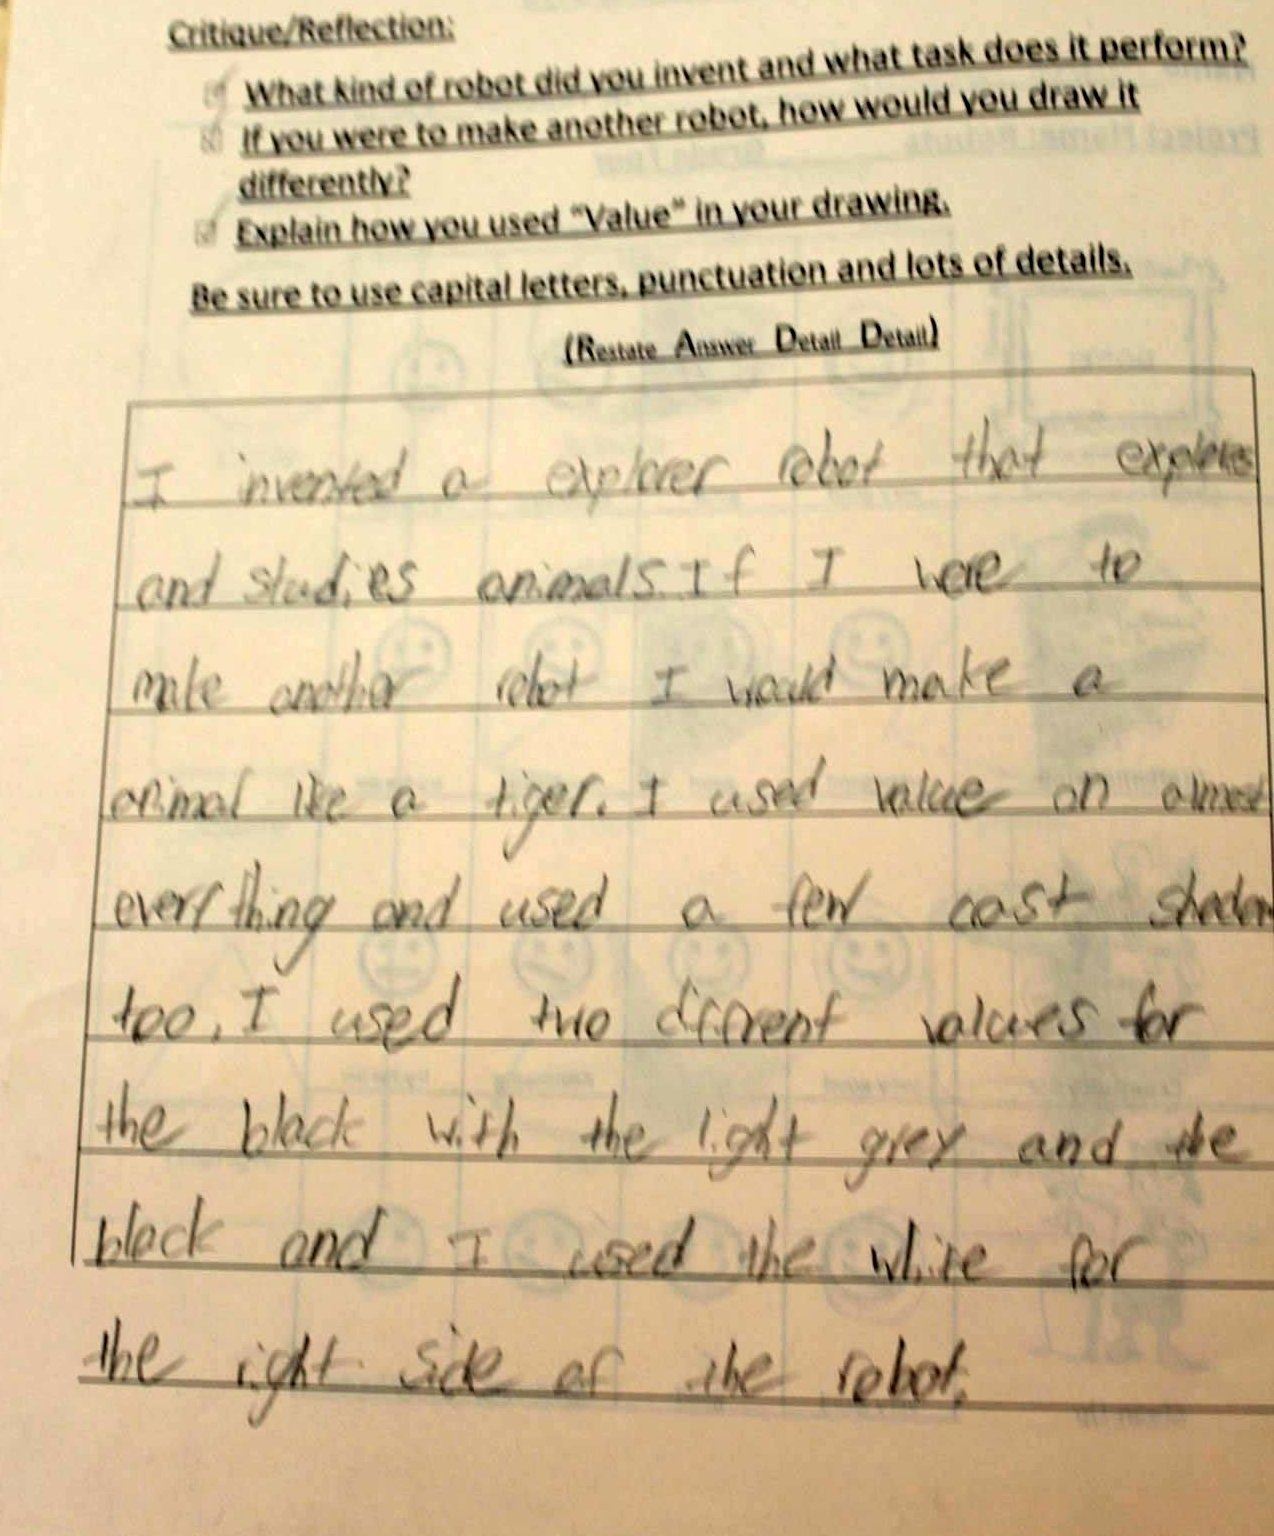 Critique/Reflection:
What kind of robot did you invent and what task does it perform?
If you were to make another robot, how would you draw it
differently?
Explain how you used "Value" in your drawing.
Be sure to use capital letters, punctuation and lots of details.
(Restate Answer Detail Detail)
I invented a explorer robot that explores
and studies animals. If I were to
make another robot I would make a
animal like a tiger. I used value on almost
everything and used a few cast shadow
too. I used two diffrent values for
the black with the light grey and the
black and I used the white for
the right side of the robot.